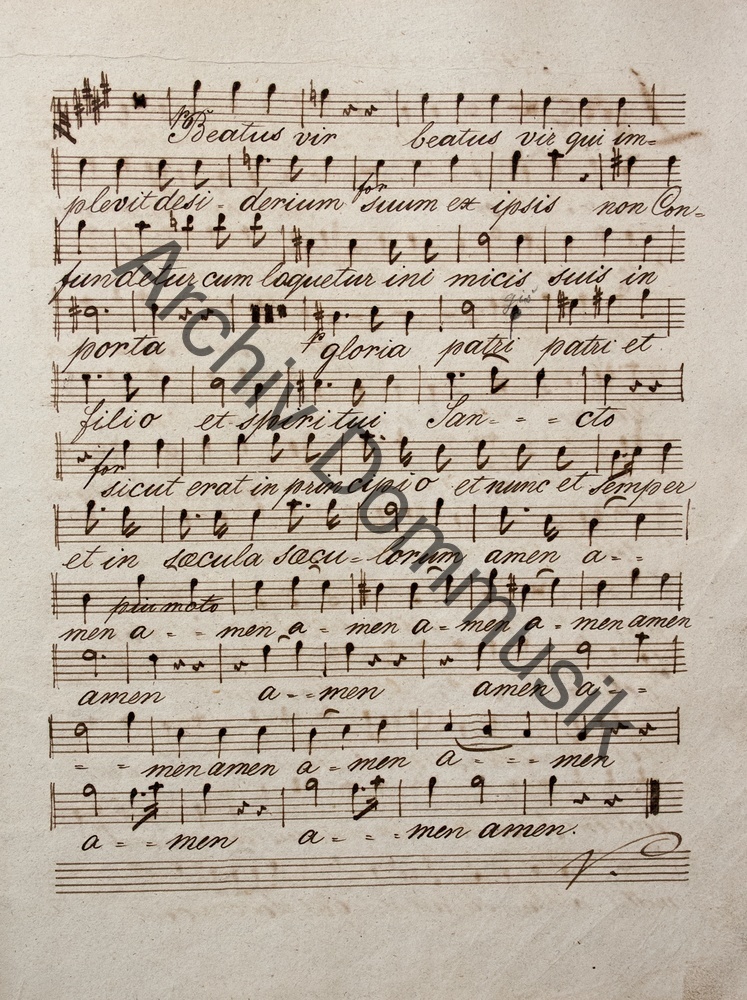 po
Beatus vir beatus vir qui im=
for
plevit desi - derium suum ex ipsis non Con=
fundetur cum loquetur ini micis suis in
gis
porta gloria patri patri et
filio et spiritui San - - - cto
for
sicut erat in principio et nunc et semper
et in sæcula sæcu = lorum amen a - -
piu moto
men a - - men a = men a = men a = men amen
amen a - - men amen a - -
= = men amen a = men a - - - men
a - - men a - - - men amen.
V.
Archiv Dommusik